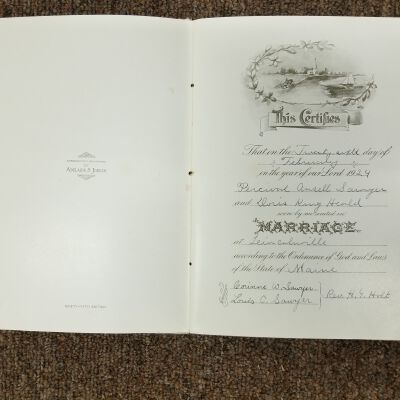 Adelaide S. Jordan
This Certifies
That on the Twenty sixth day of
February
in the year of our Lord 1929
Percival Ansell Sawyer
and Doris King Heald
were by me united in
MARRIAGE
at Lincolnville
according to the Ordinance of God and Laws
of the State of Maine
Corinne W. Sawyer
Louis O. Sawyer
Rev. H. I. Holt